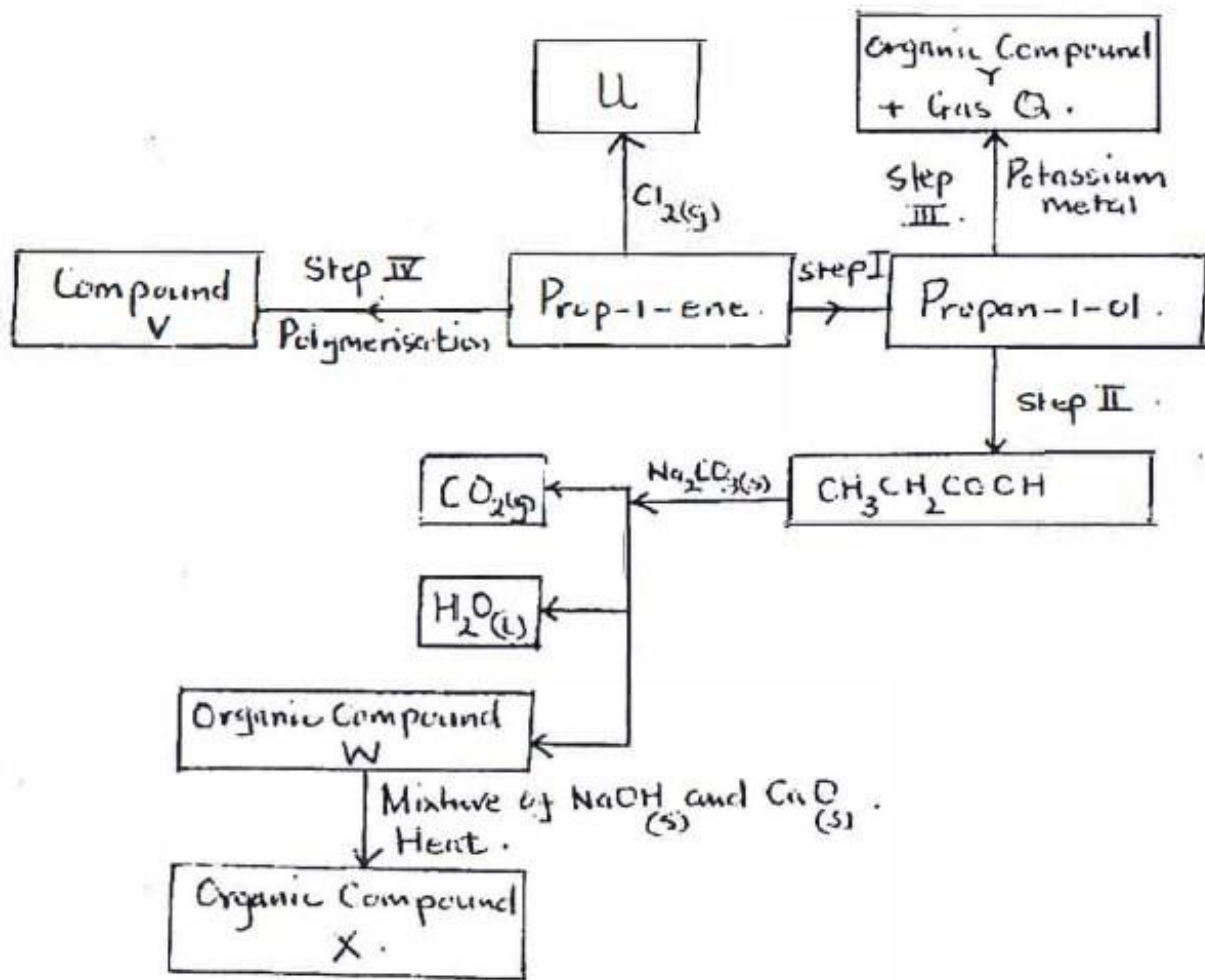 U
Organic Compound
Y
+ Gas Q.
Cl2(g)
Step
III.
Potassium
metal
Compound
V
Step IV
Polymerisation
Prop-1-ene.
Step I
Propan-1-ol.
Step II.
CO2(g)
Na2CO3(s)
CH3CH2COOH
H2O(l)
Organic Compound
W
Mixture of NaOH(s) and CaO(s).
Heat.
Organic Compound
X.